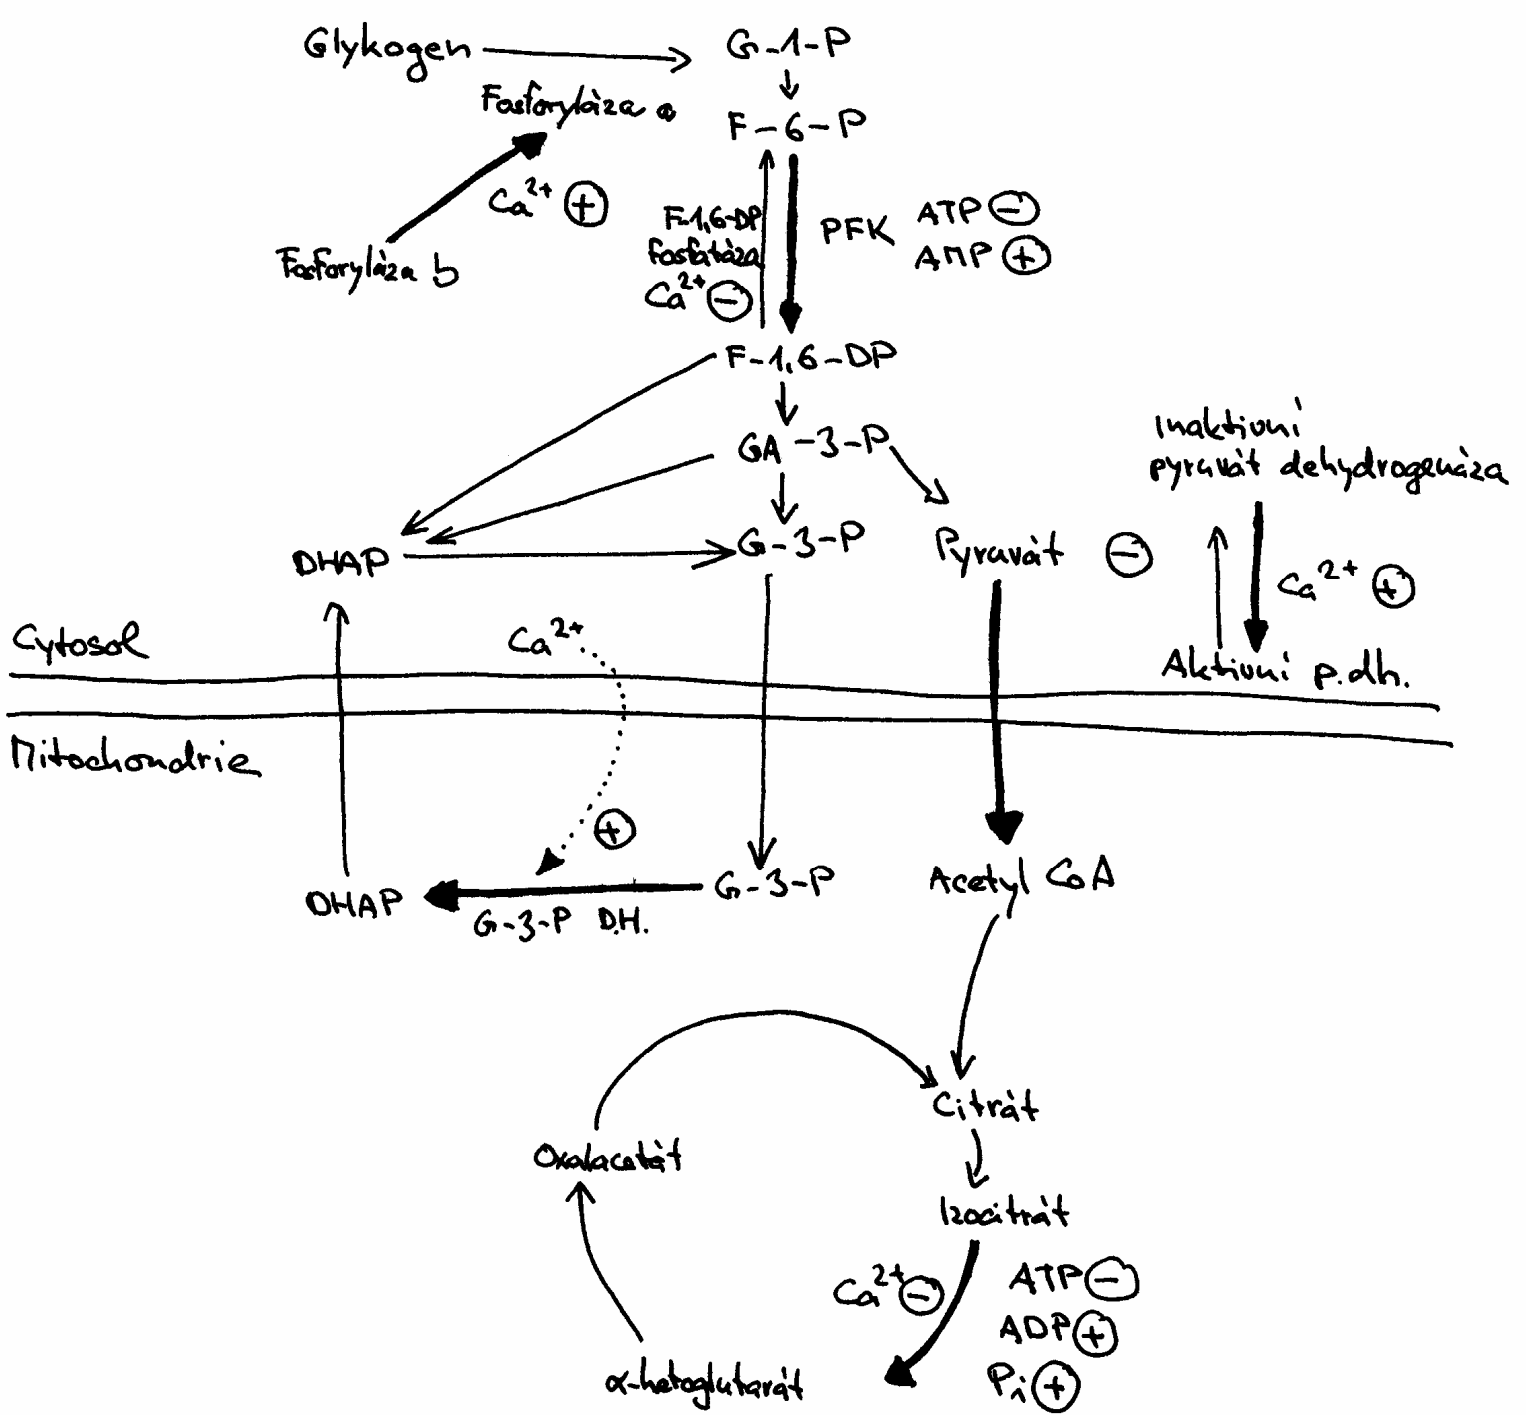 Glykogen
G-1-P
Fosforyláza a
F-6-P
Ca2+ +
Fosforyláza b
F-1,6-DP
fosfatáza
Ca2+ -
PFK
ATP -
AMP +
F-1,6-DP
GA-3-P
Inaktivní
pyruvát dehydrogenáza
DHAP
G-3-P
Pyruvát -
Ca2+ +
Aktivní p.dh.
Cytosol
Ca2+
Mitochondrie
+
DHAP
G-3-P D.H.
G-3-P
Acetyl CoA
Citrát
Oxalacetát
Izocitrát
Ca2+ -
ATP -
ADP +
Pi +
α-ketoglutarát